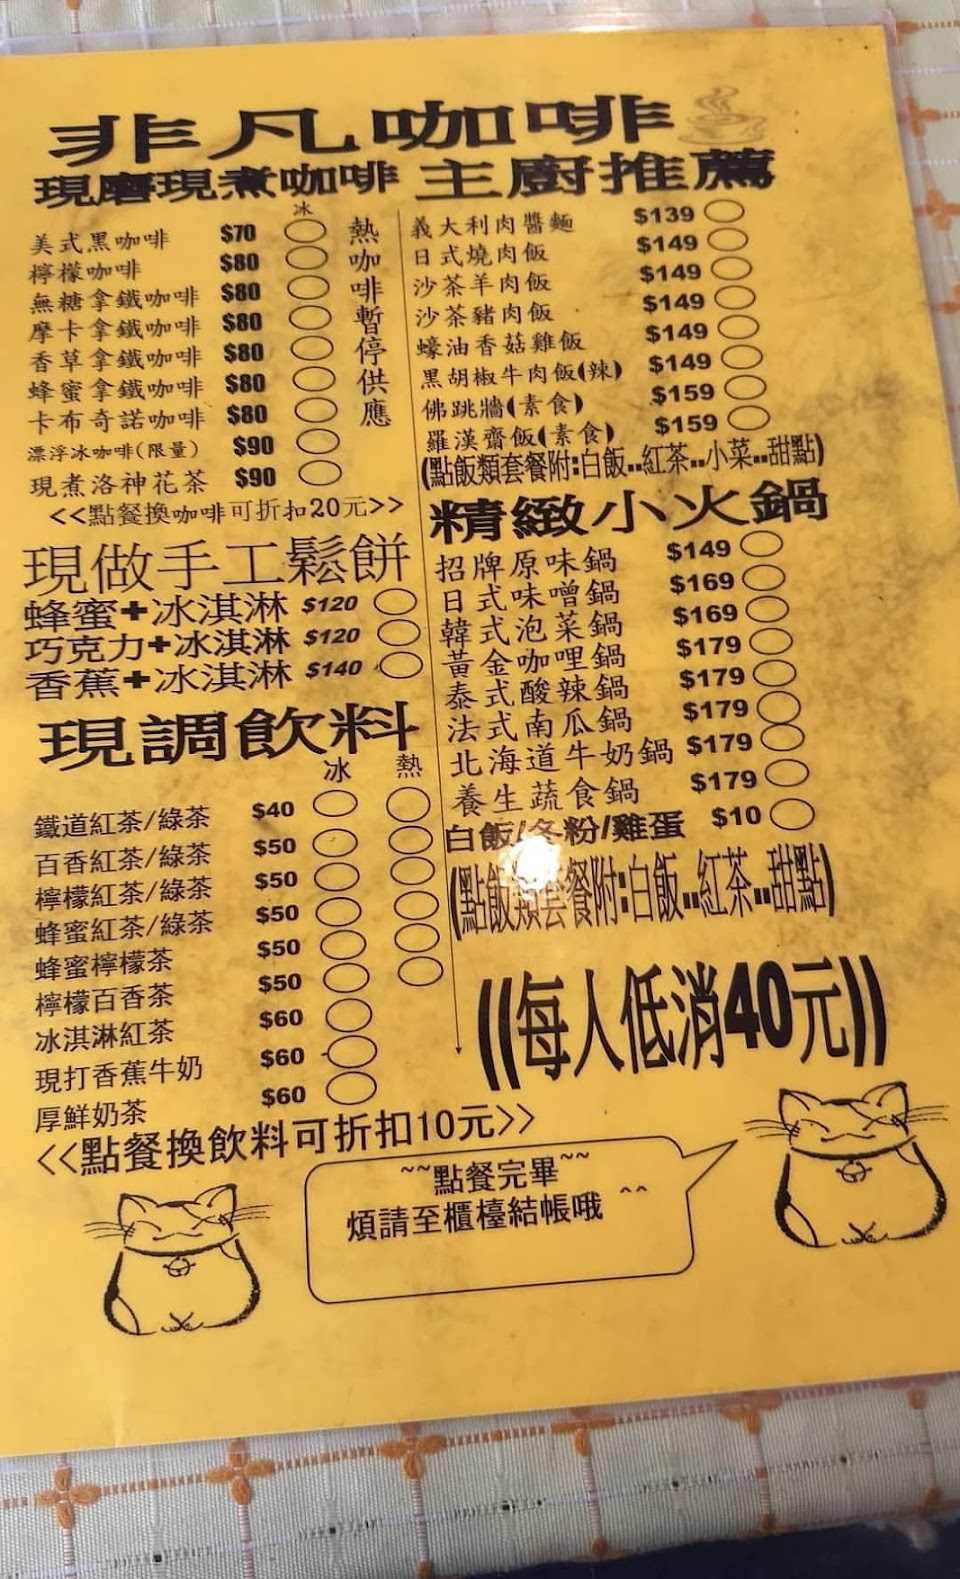 非凡咖啡
現磨現煮咖啡
冰
美式黑咖啡 $70
檸檬咖啡 $80
無糖拿鐵咖啡 $80
摩卡拿鐵咖啡 $80
香草拿鐵咖啡 $80
蜂蜜拿鐵咖啡 $80
卡布奇諾咖啡 $80
漂浮冰咖啡(限量) $90
現煮洛神花茶 $90
熱咖啡暫停供應
<<點餐換咖啡可折扣20元>>
現做手工鬆餅
蜂蜜+冰淇淋 $120
巧克力+冰淇淋 $120
香蕉+冰淇淋 $140
現調飲料
冰 熱
鐵道紅茶/綠茶 $40
百香紅茶/綠茶 $50
檸檬紅茶/綠茶 $50
蜂蜜紅茶/綠茶 $50
蜂蜜檸檬茶 $50
檸檬百香茶 $50
冰淇淋紅茶 $60
現打香蕉牛奶 $60
厚鮮奶茶 $60
<<點餐換飲料可折扣10元>>
主廚推薦
義大利肉醬麵 $139
日式燒肉飯 $149
沙茶羊肉飯 $149
沙茶豬肉飯 $149
蠔油香菇雞飯 $149
黑胡椒牛肉飯(辣) $149
佛跳牆(素食) $159
羅漢齋飯(素食) $159
(點飯類套餐附:白飯..紅茶..小菜..甜點)
精緻小火鍋
招牌原味鍋 $149
日式味噌鍋 $169
韓式泡菜鍋 $169
黃金咖哩鍋 $179
泰式酸辣鍋 $179
法式南瓜鍋 $179
北海道牛奶鍋 $179
養生蔬食鍋 $179
白飯/冬粉/雞蛋 $10
(點飯類套餐附:白飯..紅茶..甜點)
((每人低消40元))
~~點餐完畢~~
煩請至櫃檯結帳哦 ^^